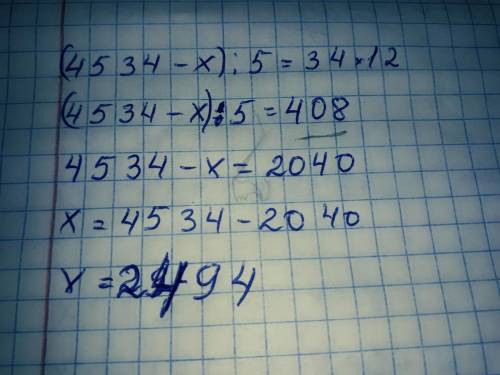 (4534-x):5=34×12
(4534-x):5=408
4534-x=2040
x=4534-2040
x=2494